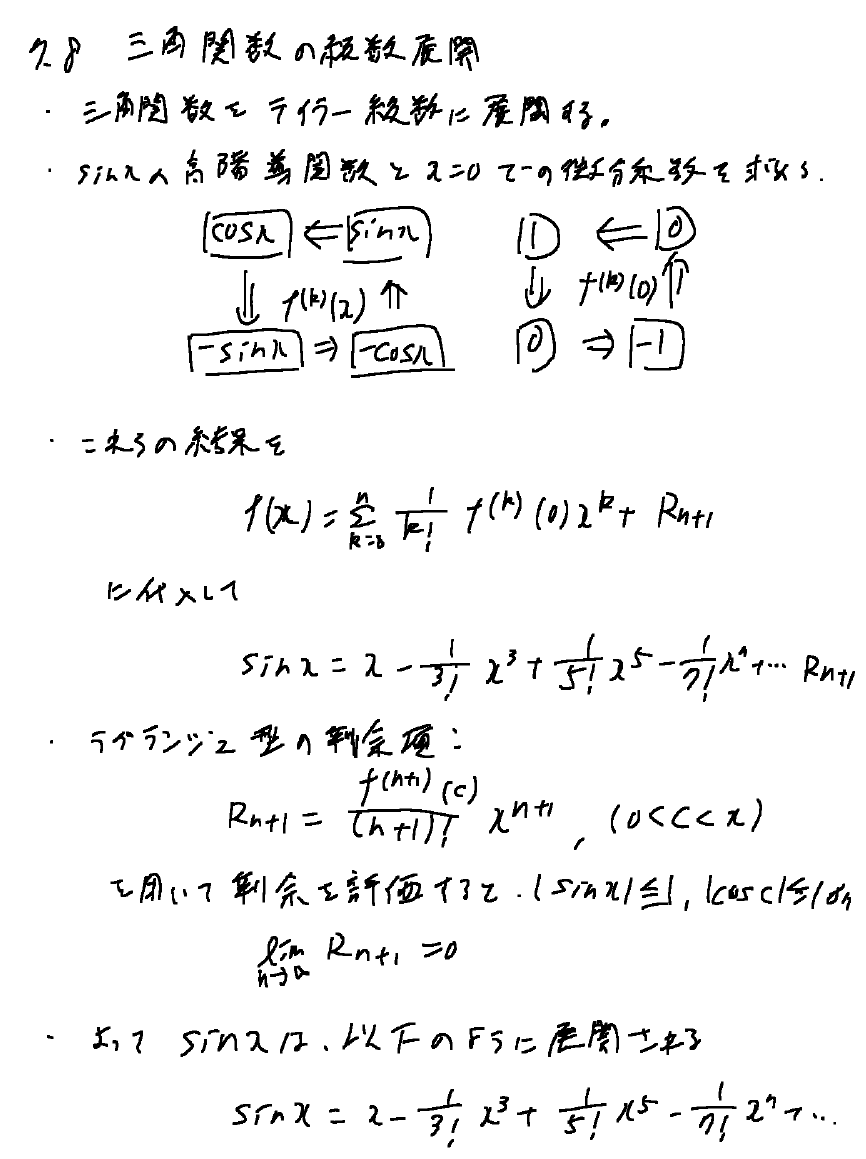 7.8 三角関数の級数展開
・三角関数をテイラー級数に展開する。
・sinxの高階導関数とx=0での微分係数を求める.
cosx ⇐ sinx 1 ⇐ 0
⇓ f^(k)(x) ⇑ ⇓ f^(k)(0) ⇑
-sinx ⇒ -cosx 0 ⇒ -1
・これらの結果を
f(x) = Σ_{k=0}^{n} 1/k! f^(k)(0) x^k + R_{n+1}
に代入して
sinx = x - 1/3! x^3 + 1/5! x^5 - 1/7! x^7 + … R_{n+1}
・ラグランジュ型の剰余項:
R_{n+1} = f^(n+1)(c)/(n+1)! x^{n+1}, (0<c<x)
を用いて剰余を評価すると.|sinx|≦1, |cosc|≦1より
lim_{n→∞} R_{n+1} = 0
・よって sinxは、以下のように展開される
sinx = x - 1/3! x^3 + 1/5! x^5 - 1/7! x^7 + …